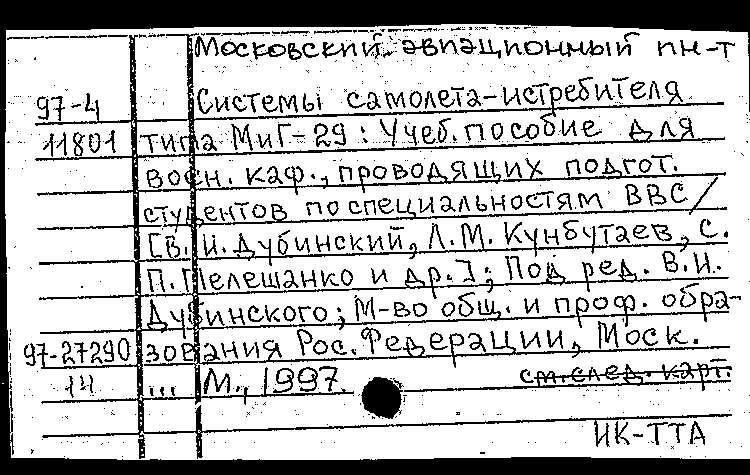 Московский авиационный ин-т
97-4 Системы самолета-истребителя
11801 типа МиГ-29: Учеб. пособие для
воен. каф., проводящих подгот.
студентов по специальностям ВВС/
[В. И. Дубинский, Л. М. Кунбутаев, С.
П. Пелешанко и др.]; Под ред. В. И.
Дубинского; М-во общ. и проф. обра-
97-27290 зования Рос. Федерации, Моск.
14 ... М., 1997. см. след. карт.
ИК-ТТА